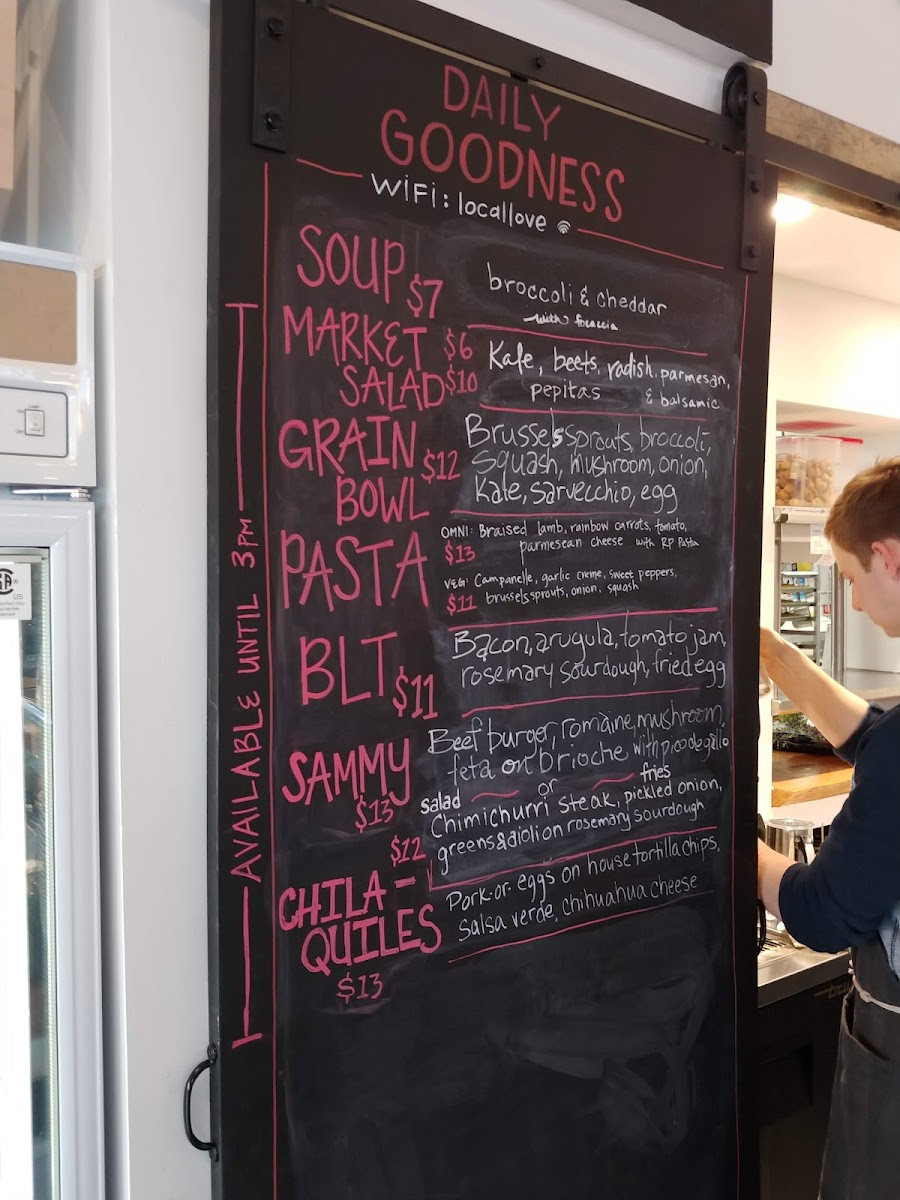 DAILY
GOODNESS
WiFi: locallove
SOUP $7
broccoli & cheddar
with focaccia
MARKET $6
SALAD $10
Kale, beets, radish, parmesan,
pepitas & balsamic
GRAIN
BOWL $12
Brussels sprouts, broccoli,
squash, mushroom, onion,
Kale, sarvecchio, egg
PASTA
OMNI: Braised lamb, rainbow carrots, tomato,
$13 parmesean cheese with RP Pasta
VEG: Campanelle, garlic creme, sweet peppers,
$11 brussels sprouts, onion, squash
BLT $11
Bacon, arugula, tomato jam,
rosemary sourdough, fried egg
SAMMY
$13
Beef burger, romaine, mushroom,
feta on brioche with pico de gallo
salad or fries
$12
Chimichurri steak, pickled onion,
greens & aioli on rosemary sourdough
CHILA-
QUILES
$13
Pork or eggs on house tortilla chips,
salsa verde, chihuahua cheese
AVAILABLE UNTIL 3PM
US